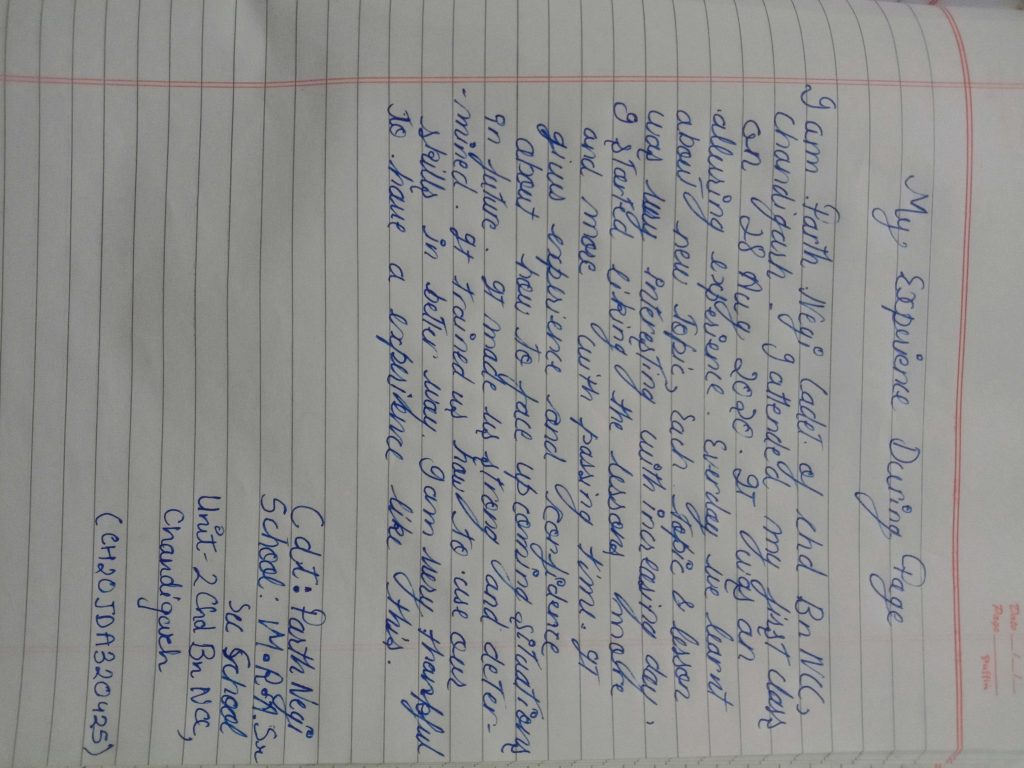 Date
Page
My. Expirience During Page
I am Parth Negi Cadet. of chd Bn NCC,
Chandigarh. I attended my first class
on 28 Aug 2020. It was an
allusing expirience. Everday we learnt
about new topic, Each topic & lesson
was very interesting with increasing day,
I Started liking the lessons "more
and more with passing time. It
gives expirience and confidence
about how to face upcoming situations
in futue. It made us strong and deter-
-mined. It trained us how to use our
skills in beter way. I am very thankful
To have a expirience like this.
Cdt: Parth Negi
School: M.R.A. Sr
Sec School
Unit- 2 Chd Bn NCC,
Chandigarh
(CH20JDA320425)